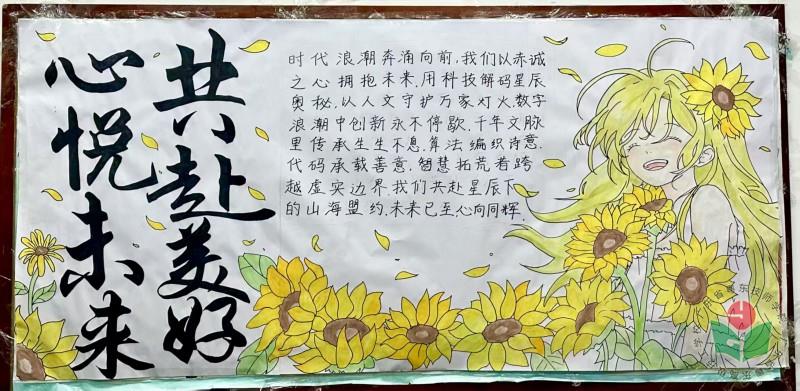 共赴美好
心悦未来
时代浪潮奔涌向前,我们以赤诚
之心拥抱未来.用科技解码星辰
奥秘,以人文守护万家灯火.数字
浪潮中创新永不停歇.千年文脉
里传承生生不息.算法编织诗意.
代码承载善意.智慧拓荒者跨
越虚实边界.我们共赴星辰下
的山海盟约.未来已至心向同辉.